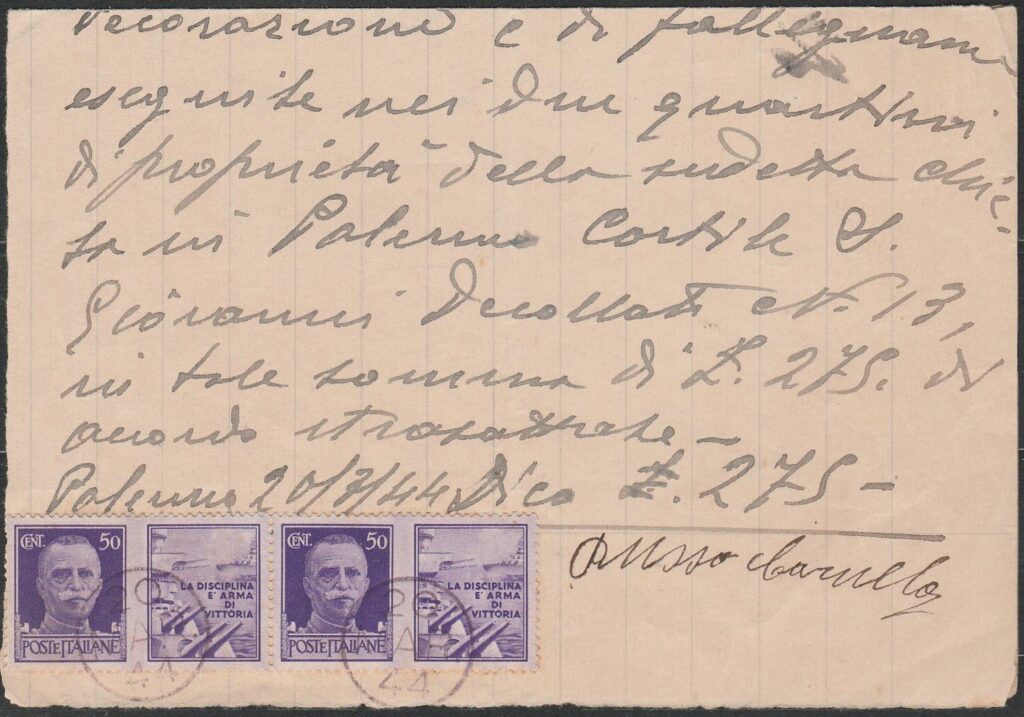 decorazione e di fallegname
eseguite nei due quartini
di proprietà della sudetta chie-
sa in Palermo Cortile S.
Giovanni Decollato N. 13,
in tale somma di £. 275. di
accordo strasattate -
Palermo 20/3/44 Dico £. 275 -
Russo Carmelo
CENT. 50
POSTE ITALIANE
LA DISCIPLINA
E' ARMA
DI
VITTORIA
CENT. 50
POSTE ITALIANE
LA DISCIPLINA
E' ARMA
DI
VITTORIA
20
44
20
44